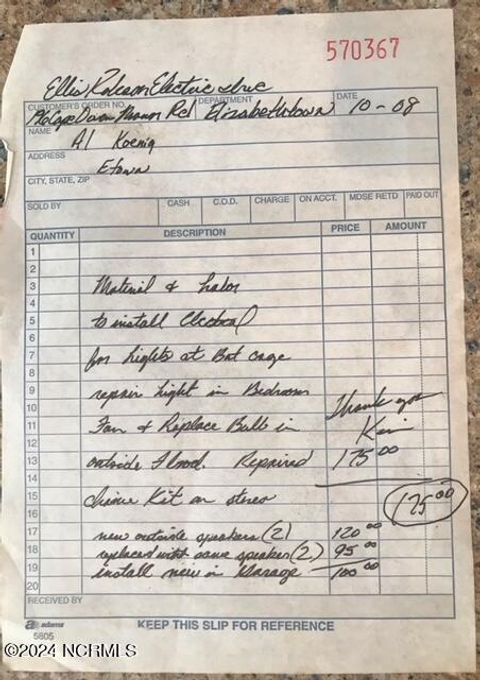 570367
Ellis Electric Inc
CUSTOMER'S ORDER NO. DEPARTMENT DATE
Rd Elizabethtown 10-08
NAME Al Koenig
ADDRESS
Etown
CITY, STATE, ZIP
SOLD BY CASH C.O.D. CHARGE ON ACCT. MDSE RETD PAID OUT
QUANTITY DESCRIPTION PRICE AMOUNT
1
2
3 Material & Labor
4
5 to install Electrical
6
7 for Lights at Bat cage
8
9 repair Light in Bedroom
10 Thank you
11 Fan & Replace Bulb in
12
13 outside Flood. Repaired 175.00
14
15 Kit on stereo 175.00
16
17 new outside speakers (2) 120.00
18 replaced with same speaker (2) 95.00
19 install new in Garage 100.00
20
RECEIVED BY
adams
5805
KEEP THIS SLIP FOR REFERENCE
©2024 NCRMLS